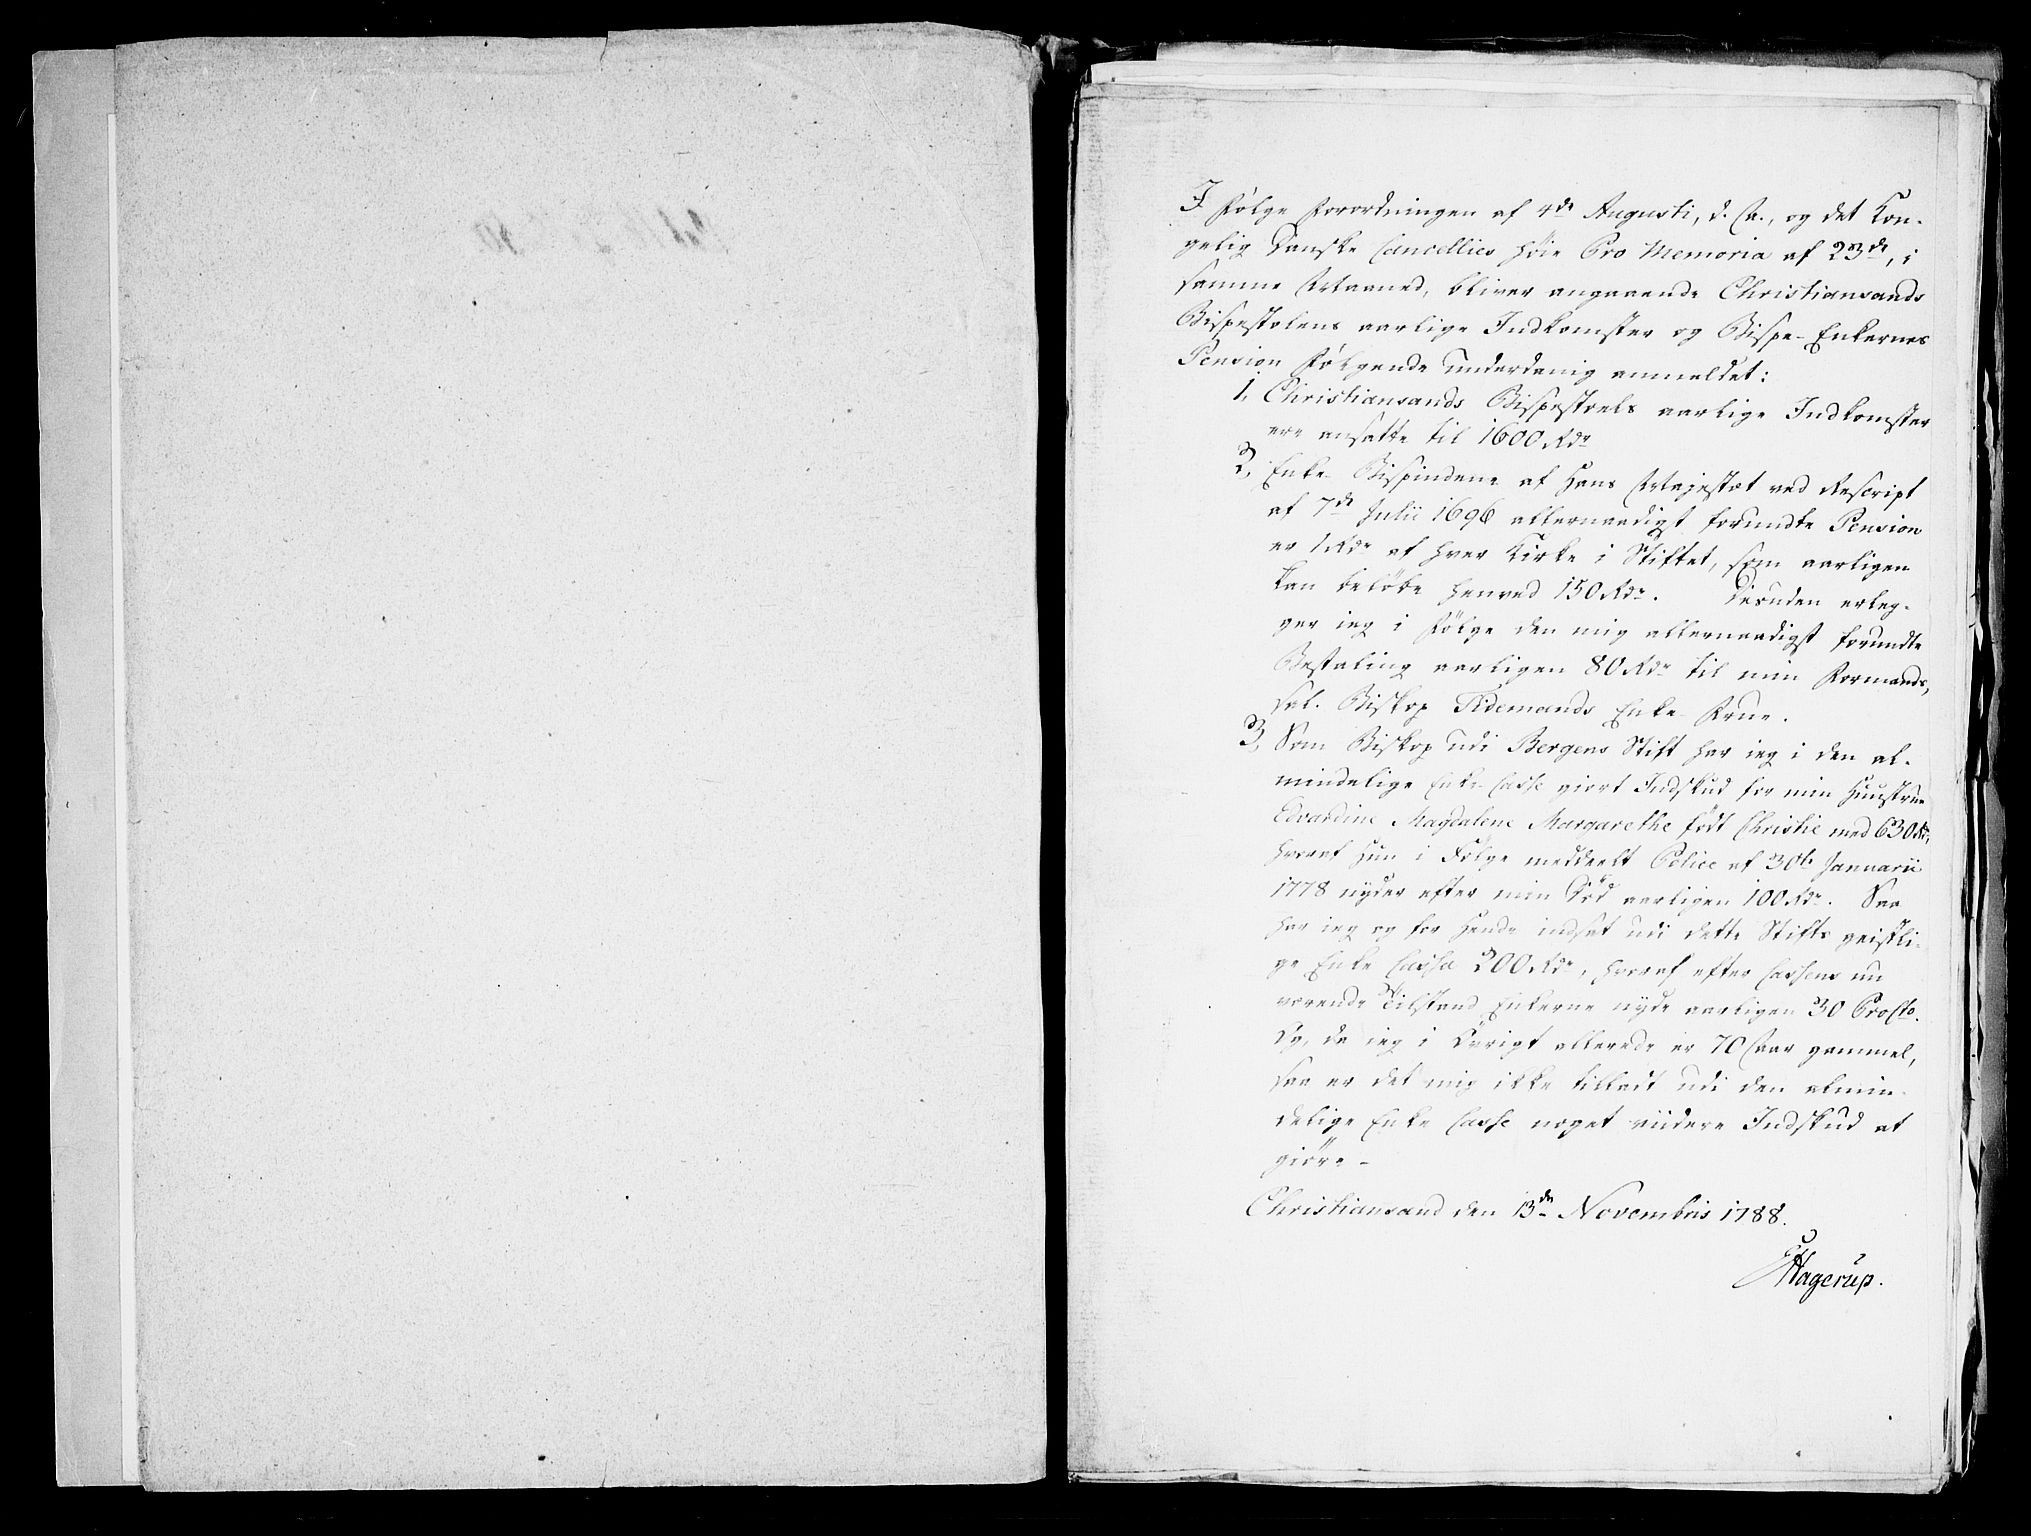 I Følge Forordningen af 4de Augusti, d. A., og det Kon-
gelig Danske Cancellies høie Pro Memoria af 23de, i
samme Maaned, bliver angaaende Christiansands
Bispestolens aarlige Indkomster og Bispe-Enkernes
Pension følgende underdanig anmeldet:
1, Christiansands Bispestoels aarlige Indkomster
ere ansatte til 1600 Rdr
2, Enke Bispindens af Hans Majestæt ved Rescript
af 7de Julii 1696 allernaadigst forundte Pension
er 1 Rdr af hver Kirke i Stiftet, som aarligen
kan beløbe henved 150 Rdr. Desuden erleg-
ger ieg i Følge den mig allernaadigst forundte
Bestaling aarligen 80 Rdr til min Formands,
sal. Biskop Tidemands Enke Frue.
3, Som Biskop udi Bergens Stift har ieg i den al-
mindelige Enke Casse giort Indskud for min Huustrue
Edvardine Magdalene Margarethe født Christie med 630 Rd,
hvoraf Hun i Følge meddeelt Police af 30te Januarii
1778 nyder efter min Død aarligen 100 Rdr. Saa
har ieg og for Hende indsat udi dette Stifts geistli-
ge Enke Cassa 200 Rdr, hvoraf efter Cassens nu
værende Tilstand Enkerne nyde aarligen 30 ProCto.
Og, da ieg i Øvrigt allerede er 70 Aar gammel,
saa er det mig ikke tilladt udi den almin-
delige Enke Casse noget viidere Indskud at
giøre -
Christiansand den 13de Novembris 1788.
Hagerup.